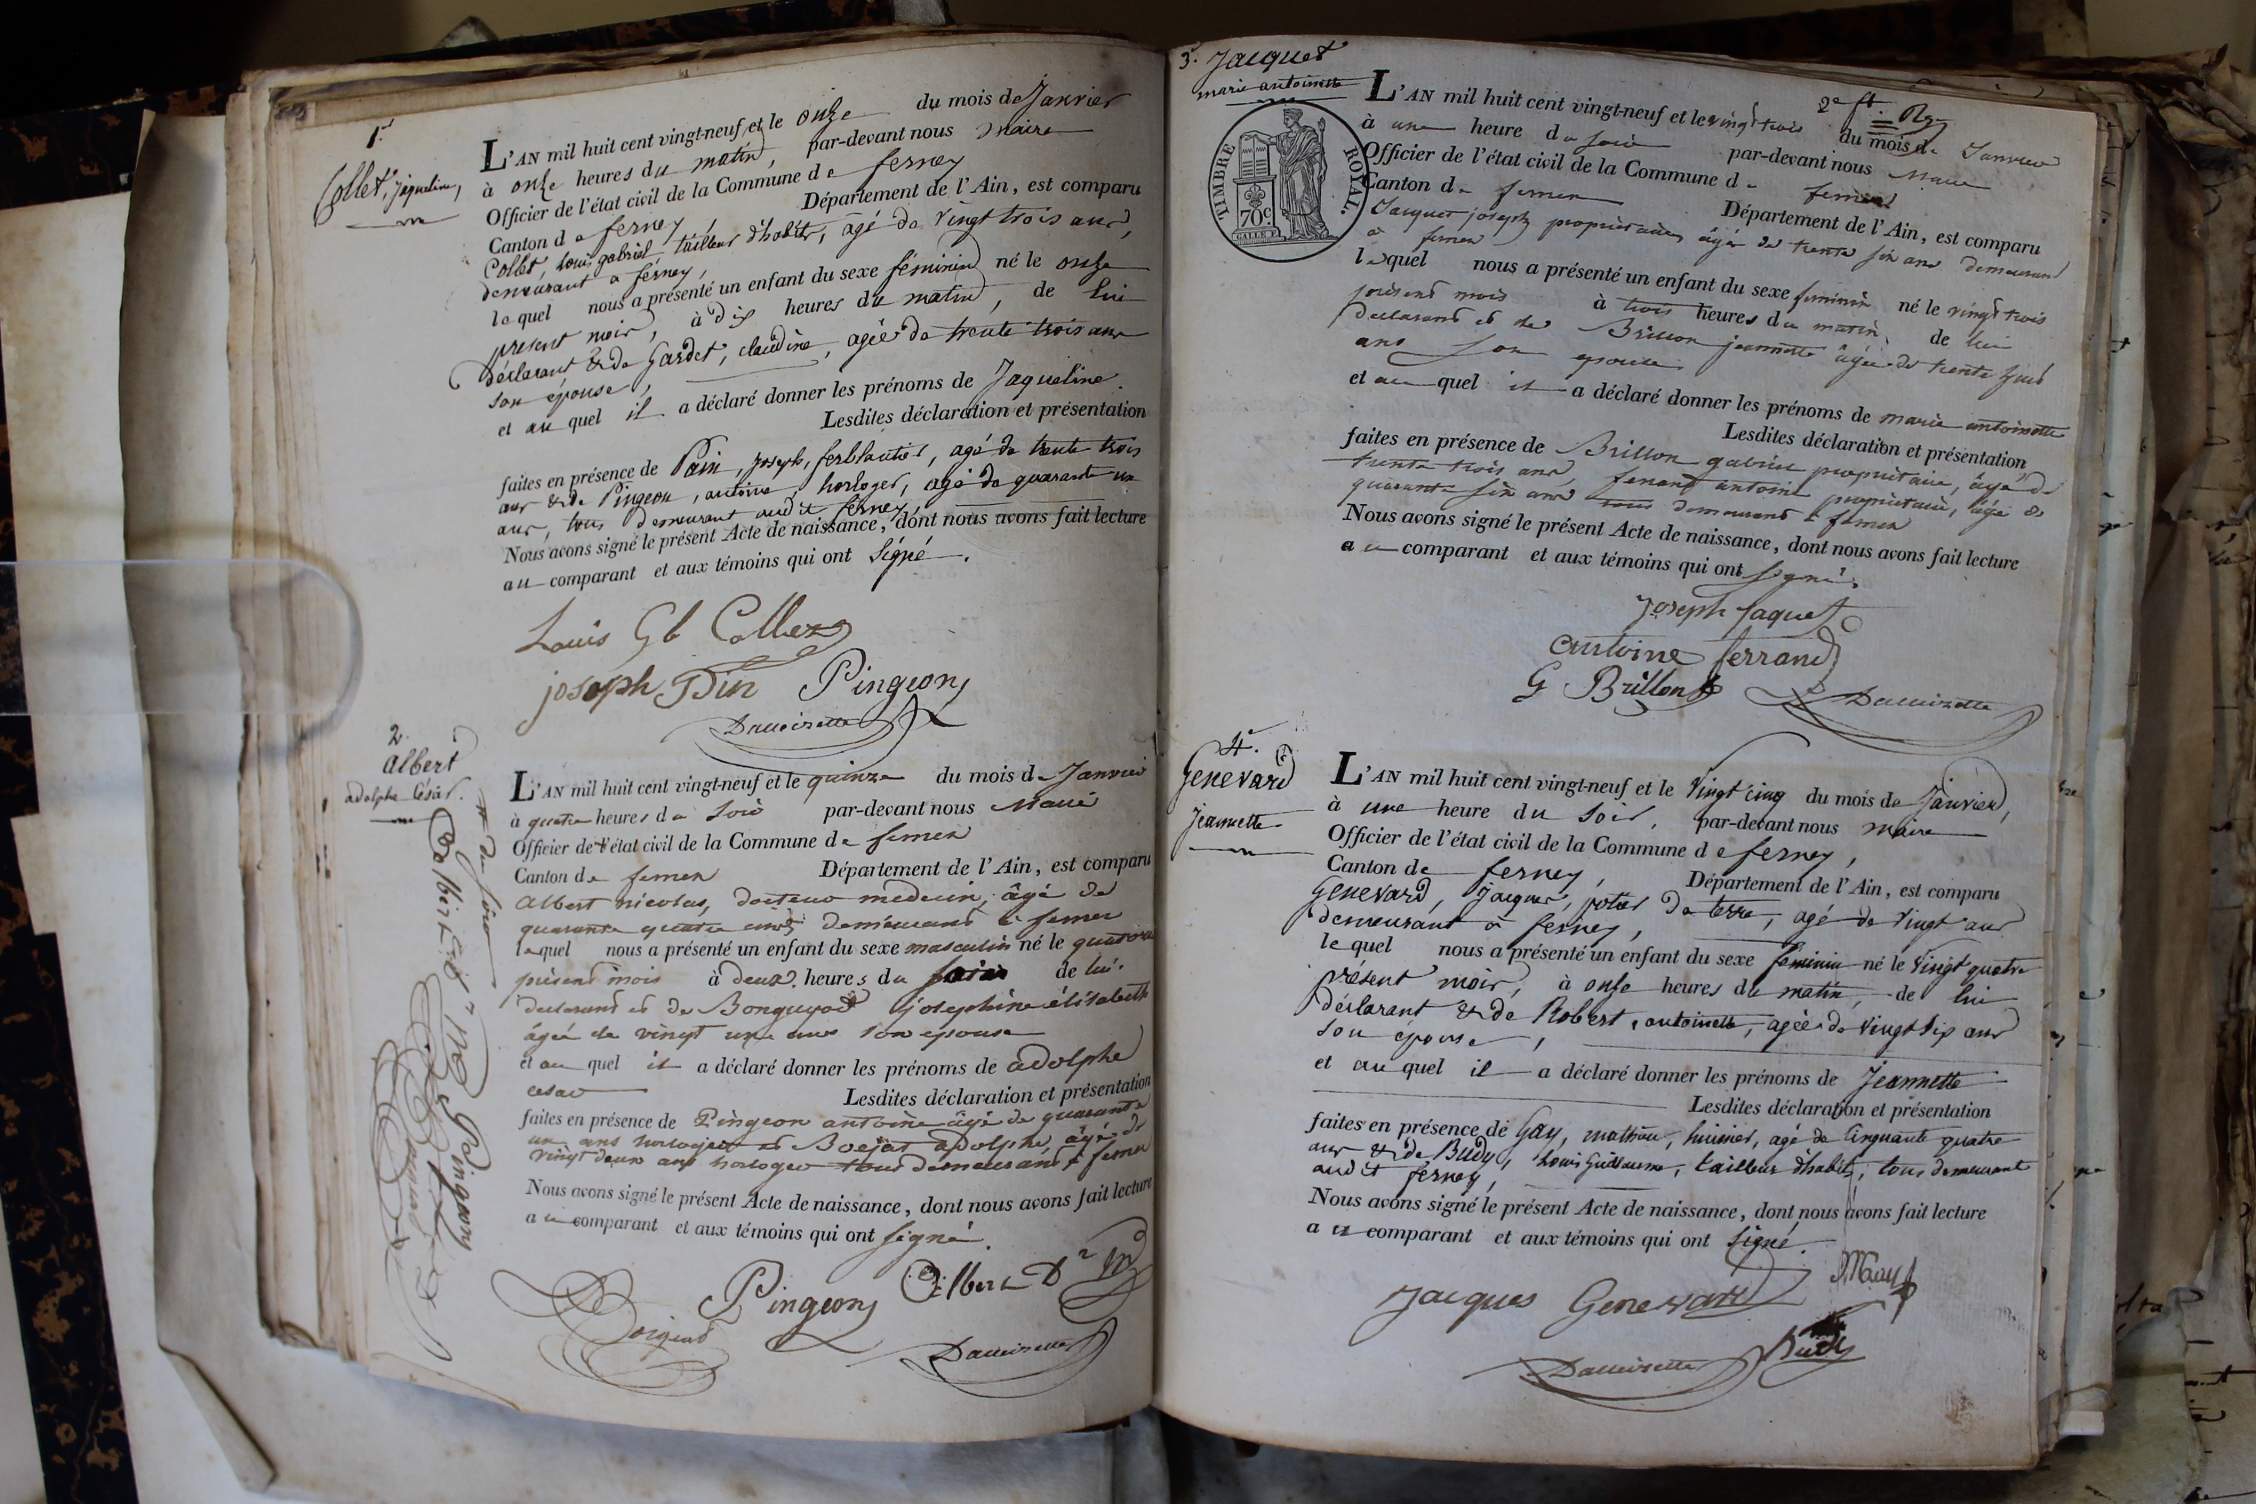 1.
Collet, Jaqueline,
L'AN mil huit cent vingt-neuf et le onze du mois de Janvier
à onze heures du matin, par-devant nous Maire
Officier de l'état civil de la Commune de ferney
Canton de ferney, Département de l'Ain, est comparu
Collet, Louis gabriel, tailleur d'habits, agé de vingt trois ans,
demeurant à ferney,
lequel nous a présenté un enfant du sexe féminin né le onze
present mois, à dix heures du matin, de lui
déclarant & de Gardet, claudine, agée de trente trois ans
son épouse,
et auquel il a déclaré donner les prénoms de Jaqueline.
Lesdites déclaration et présentation
faites en présence de Pain, Joseph, ferblantier, agé de trente trois
ans & de Pingeon, antoine, horloger, agé de quarante un
ans, tous demeurant audit ferney,
Nous avons signé le présent Acte de naissance, dont nous avons fait lecture
au comparant et aux témoins qui ont signé.
Louis Gb Collet
joseph Pin Pingeon
2.
albert
adolphe César.
L'AN mil huit cent vingt-neuf et le quinze du mois de Janvier
à quatre heures du soir par-devant nous Maire
Officier de l'état civil de la Commune de ferney
Canton de ferney Département de l'Ain, est comparu
Albert nicolas, docteur medecin, âgé de
quarante quatre ans demeurant à ferney
lequel nous a présenté un enfant du sexe masculin né le quatorze
présent mois à deux heures du de lui
declarant et de josephine élisabeth
âgée de vingt un ans son epouse
et auquel il a déclaré donner les prénoms de adolphe
cesar
Lesdites déclaration et présentation
faites en présence de Pingeon antoine âgé de quarante
un ans horloger et adolphe âgé de
vingt deux ans horloger tous demeurant à ferney
Nous avons signé le présent Acte de naissance, dont nous avons fait lecture
au comparant et aux témoins qui ont signé.
+ du soir
Pingeon
Pingeon Albert Dr
3. Jacquet
marie antoinette
TIMBRE ROYAL.
70c.
2e ft. Rg
L'AN mil huit cent vingt-neuf et le vingt trois du mois de Janvier
à une heure du soir par-devant nous Maire
Officier de l'état civil de la Commune de ferney
Canton de ferney Département de l'Ain, est comparu
Jacquet joseph propriétaire âgé de trente six ans demeurant
à ferney
lequel nous a présenté un enfant du sexe feminin né le vingt trois
présent mois à trois heures du matin de lui
declarant et de Brillon jeannette âgée de trente
ans son epouse
et auquel il a déclaré donner les prénoms de marie antoinette
Lesdites déclaration et présentation
faites en présence de Brillon gabriel propriétaire, âgé de
trente trois ans, ferrand antoine propriétaire, âgé de
quarante six ans tous demeurant à ferney
Nous avons signé le présent Acte de naissance, dont nous avons fait lecture
au comparant et aux témoins qui ont signé.
Joseph Jaquet
antoine ferrand
G Brillon
4.
Genevard
Jeannette
L'AN mil huit cent vingt-neuf et le vingt cinq du mois de Janvier,
à une heure du soir, par-devant nous maire
Officier de l'état civil de la Commune de ferney,
Canton de ferney, Département de l'Ain, est comparu
Genevard, Jacques, potier de terre, agé de vingt ans
demeurant à ferney,
lequel nous a présenté un enfant du sexe feminin né le vingt quatre
présent mois, à onze heures du matin, de lui
déclarant & de Robert, antoinette, agée de vingt six ans
son épouse,
et auquel il a déclaré donner les prénoms de Jeannette
Lesdites déclaration et présentation
faites en présence de Gay, mathieu, huissier, agé de Cinquante quatre
ans & de Budy, Louis Guillaume, tailleur d'habits, tous demeurant
audit ferney,
Nous avons signé le présent Acte de naissance, dont nous avons fait lecture
au comparant et aux témoins qui ont signé.
Jacques Genevard
Budy